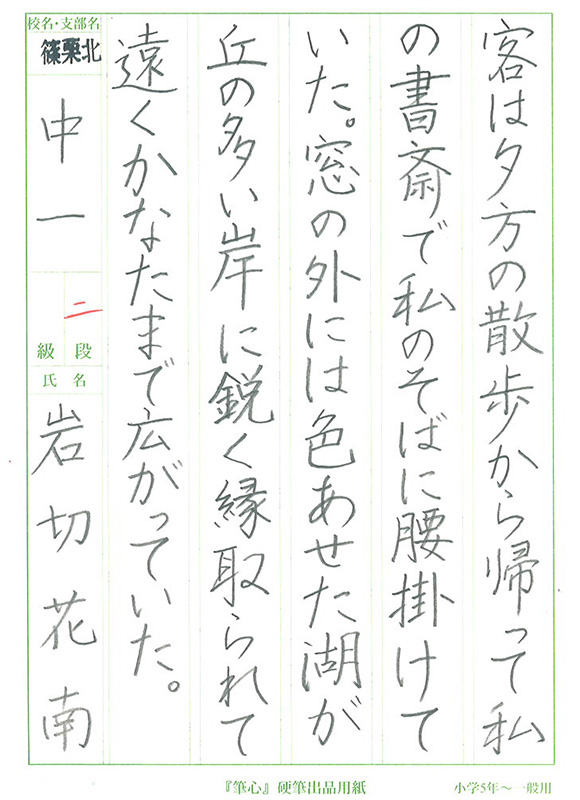 客は夕方の散歩から帰って私
の書斎で私のそばに腰掛けて
いた。窓の外には色あせた湖が
丘の多い岸に鋭く縁取られて
遠くかなたまで広がっていた。
校名・支部名
篠栗北
中一
二
級 段
氏名
岩切花南
『筆心』硬筆出品用紙
小学5年〜一般用